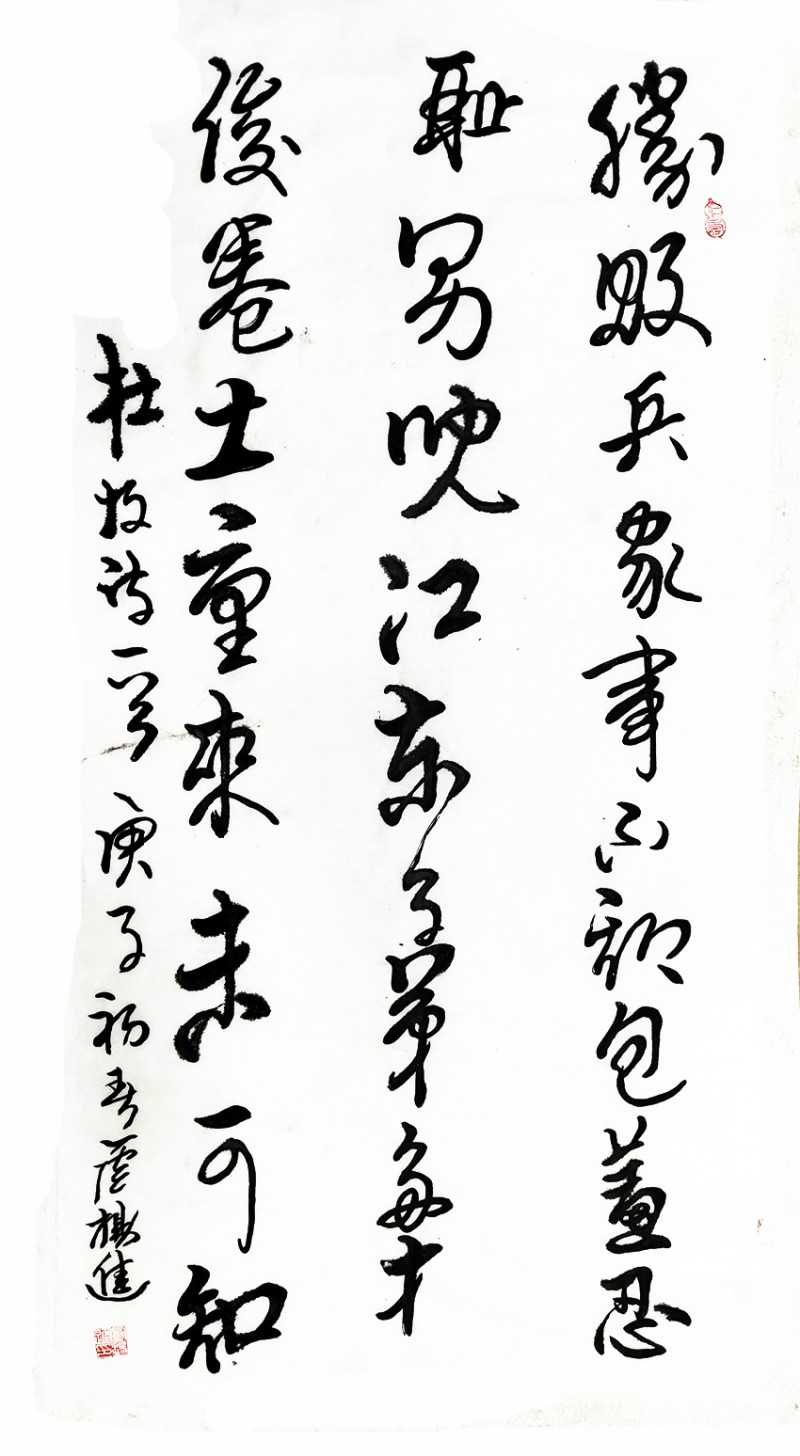 勝敗兵家事不期包羞忍
恥男兒江東子弟多才
俊卷土重來未可知
杜牧詩一首庚子初春